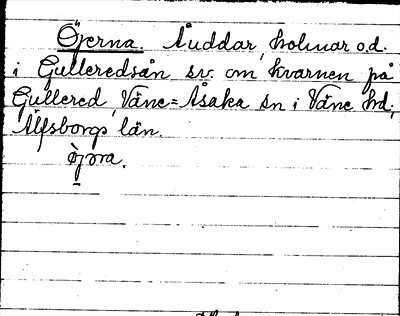 Öjerna. Åuddar, holmar o.d.
i Gulleredsån sv. om kvarnen på
Gullered, Väne-Åsaka sn i Väne hd,
Älfsborgs län.